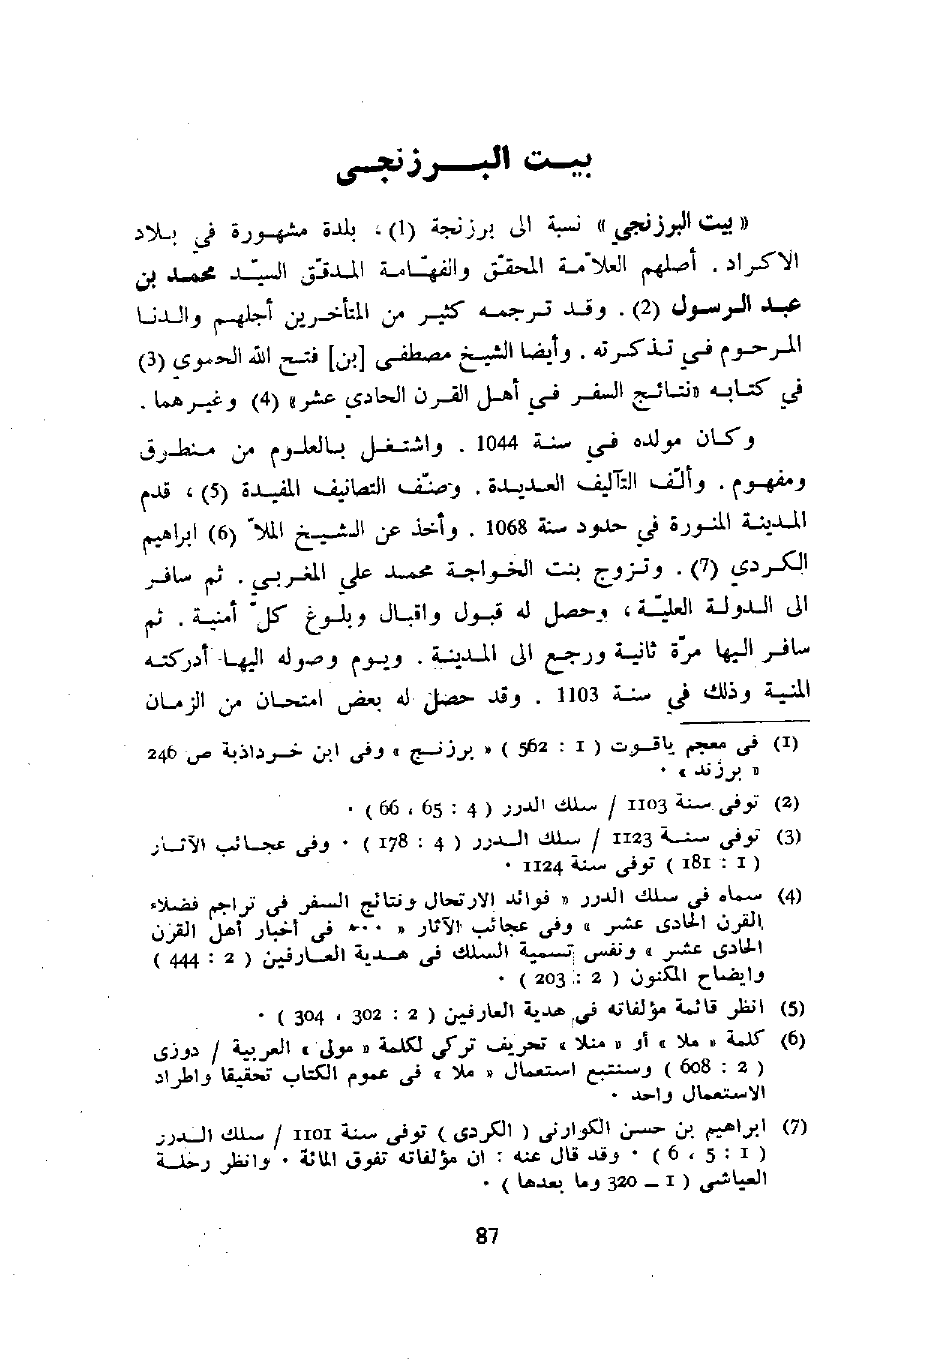 بيت البرزنجي
« بيت البرزنجي » نسبة الى برزنجة (1) ، بلدة مشهورة في بلاد
الاكراد . أصلهم العلاّمة المحقق والفهّامة المدقق السيّد محمد بن
عبد الرسول (2) . وقد ترجمه كثير من المتأخرين أجلهم والدنا
المرحوم في تذكرته . وأيضا الشيخ مصطفى [بن] فتح الله الحموي (3)
في كتابه «نتائج السفر في أهل القرن الحادي عشر» (4) وغيرهما .
وكان مولده في سنة 1044 . واشتغل بالعلوم من منطوق
ومفهوم . وألّف التآليف العديدة . وصنّف التصانيف المفيدة (5) ، قدم
المدينة المنورة في حدود سنة 1068 . وأخذ عن الشيخ الملاّ (6) ابراهيم
الكردي (7) . وتزوج بنت الخواجة محمد علي المغربي . ثم سافر
الى الدولة العليّة ، وحصل له قبول واقبال وبلوغ كلّ أمنية . ثم
سافر اليها مرّة ثانية ورجع الى المدينة . ويوم وصوله اليها أدركته
المنية وذلك في سنة 1103 . وقد حصل له بعض امتحان من الزمان
(1) في معجم ياقوت ( 1 : 562 ) « برزنج » وفي ابن خرداذبة ص 246
« برزند » ٠
(2) توفى سنة 1103 / سلك الدرر ( 4 : 65 ، 66 ) ٠
(3) توفى سنة 1123 / سلك الدرر ( 4 : 178 ) ٠ وفى عجائب الآثار
( 1 : 181 ) توفى سنة 1124 ٠
(4) سماه فى سلك الدرر « فوائد الارتحال ونتائج السفر فى تراجم فضلاء
القرن الحادى عشر » وفى عجائب الآثار « ٠٠٠ فى أخبار أهل القرن
الحادى عشر » ونفس تسمية السلك فى هدية العارفين ( 2 : 444 )
وايضاح المكنون ( 2 : 203 ) ٠
(5) انظر قائمة مؤلفاته في هدية العارفين ( 2 : 302 ، 304 ) ٠
(6) كلمة « ملا » أو « منلا » تحريف تركى لكلمة « مولى » العربية / دوزى
( 2 : 608 ) وسنتبع استعمال « ملا » فى عموم الكتاب تحقيقا واطراد
الاستعمال واحد ٠
(7) ابراهيم بن حسن الكوارنى ( الكردى ) توفى سنة 1101 / سلك الدرر
( 1 : 5 ، 6 ) ٠ وقد قال عنه : ان مؤلفاته تفوق المائة ٠ وانظر رحلة
العياشى ( 1 – 320 وما بعدها ) ٠
87